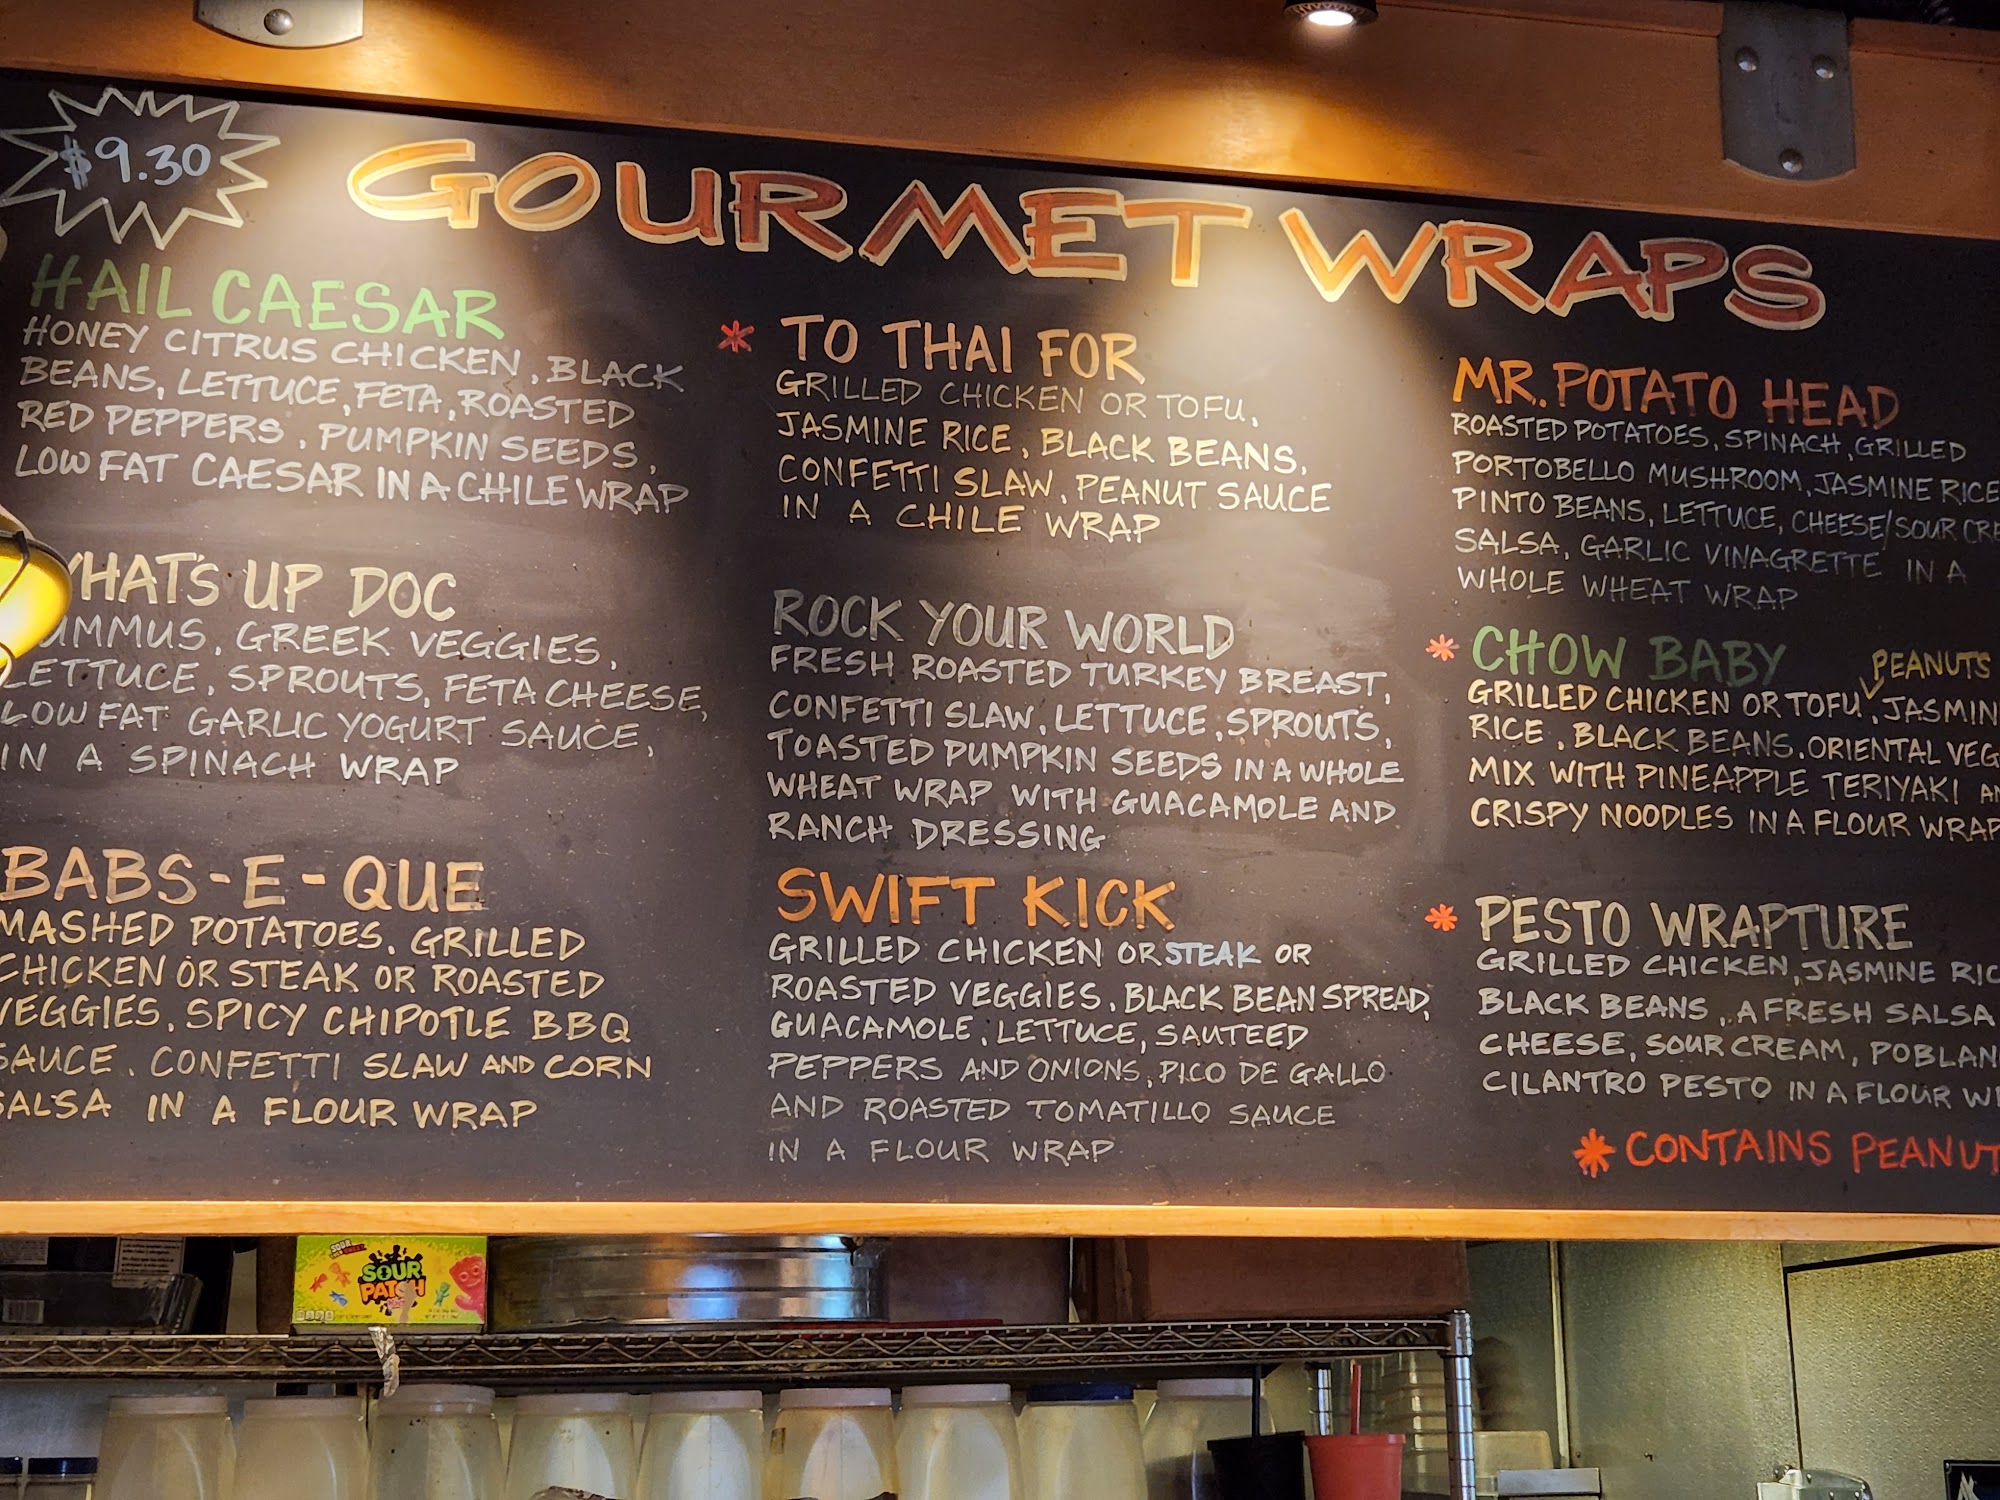 $9.30
GOURMET WRAPS
HAIL CAESAR
HONEY CITRUS CHICKEN, BLACK
BEANS, LETTUCE, FETA, ROASTED
RED PEPPERS, PUMPKIN SEEDS,
LOW FAT CAESAR IN A CHILE WRAP
WHAT'S UP DOC
HUMMUS, GREEK VEGGIES,
LETTUCE, SPROUTS, FETA CHEESE,
LOW FAT GARLIC YOGURT SAUCE,
IN A SPINACH WRAP
BABS-E-QUE
MASHED POTATOES, GRILLED
CHICKEN OR STEAK OR ROASTED
VEGGIES, SPICY CHIPOTLE BBQ
SAUCE, CONFETTI SLAW AND CORN
SALSA IN A FLOUR WRAP
* TO THAI FOR
GRILLED CHICKEN OR TOFU,
JASMINE RICE, BLACK BEANS,
CONFETTI SLAW, PEANUT SAUCE
IN A CHILE WRAP
ROCK YOUR WORLD
FRESH ROASTED TURKEY BREAST,
CONFETTI SLAW, LETTUCE, SPROUTS,
TOASTED PUMPKIN SEEDS IN A WHOLE
WHEAT WRAP WITH GUACAMOLE AND
RANCH DRESSING
SWIFT KICK
GRILLED CHICKEN OR STEAK OR
ROASTED VEGGIES, BLACK BEAN SPREAD,
GUACAMOLE, LETTUCE, SAUTEED
PEPPERS AND ONIONS, PICO DE GALLO
AND ROASTED TOMATILLO SAUCE
IN A FLOUR WRAP
MR. POTATO HEAD
ROASTED POTATOES, SPINACH, GRILLED
PORTOBELLO MUSHROOM, JASMINE RICE
PINTO BEANS, LETTUCE, CHEESE/SOUR CRE
SALSA, GARLIC VINAGRETTE IN A
WHOLE WHEAT WRAP
* CHOW BABY
PEANUTS
GRILLED CHICKEN OR TOFU, JASMIN
RICE, BLACK BEANS, ORIENTAL VEG
MIX WITH PINEAPPLE TERIYAKI AN
CRISPY NOODLES IN A FLOUR WRAP
* PESTO WRAPTURE
GRILLED CHICKEN, JASMINE RIC
BLACK BEANS, A FRESH SALSA
CHEESE, SOUR CREAM, POBLAN
CILANTRO PESTO IN A FLOUR WR
* CONTAINS PEANUT
SOUR
SOUR
PATCH